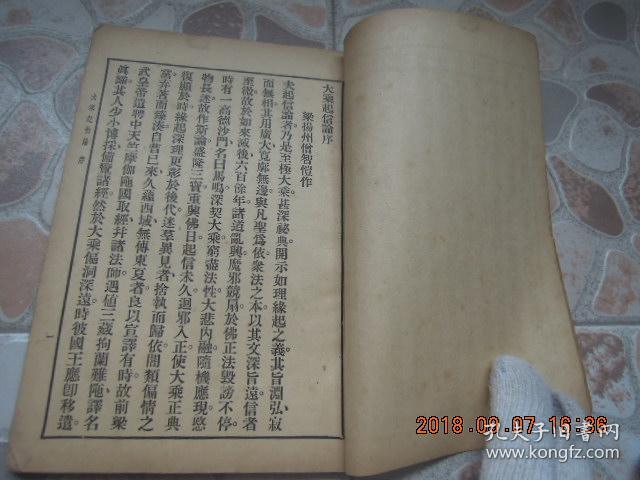 大乘起信論序
梁揚州僧智愷作
夫起信論者乃是至極大乘甚深祕典開示如理緣起之義其旨淵弘寂
而無相其用廣大寬廓無邊與凡聖爲依衆法之本以其文深旨遠信者
至微故於如來滅後六百餘年諸道亂興魔邪競扇於佛正法毀謗不停
時有一高德沙門名曰馬鳴深契大乘窮盡法性大悲內融隨機應現愍
物長迷故作斯論盛隆三寶重興佛日起信未久迴邪入正使大乘正典
復顯於時緣起深理更彰於後代迷羣異見者捨執而歸依闇類偏情之
黨弃著而臻湊自昔已來久蘊西域無傳東夏者良以宣譯有時故前梁
武皇帝遣聘中天竺摩伽陁國取經幷諸法師遇値三藏拘蘭難陁譯名
眞諦其人少小博採備覽諸經然於大乘偏洞深遠時彼國王應卽移遣
大乘起信論 序
一
2018.09.07 16:36
孔夫子旧书网
www.kongfz.com